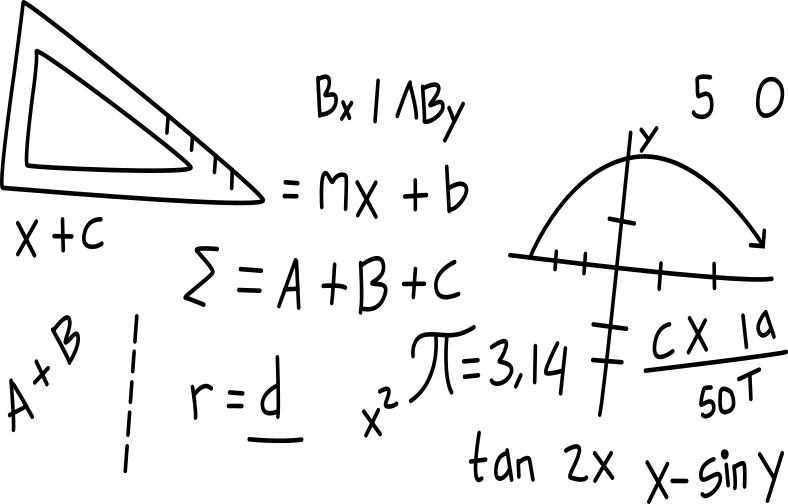 Bx | ΛBy
5 0
y
= Mx + b
x + c
Σ = A + B + C
A + B
r = d
x²
π = 3,14
C X 19
50T
tan 2x
x - sin y